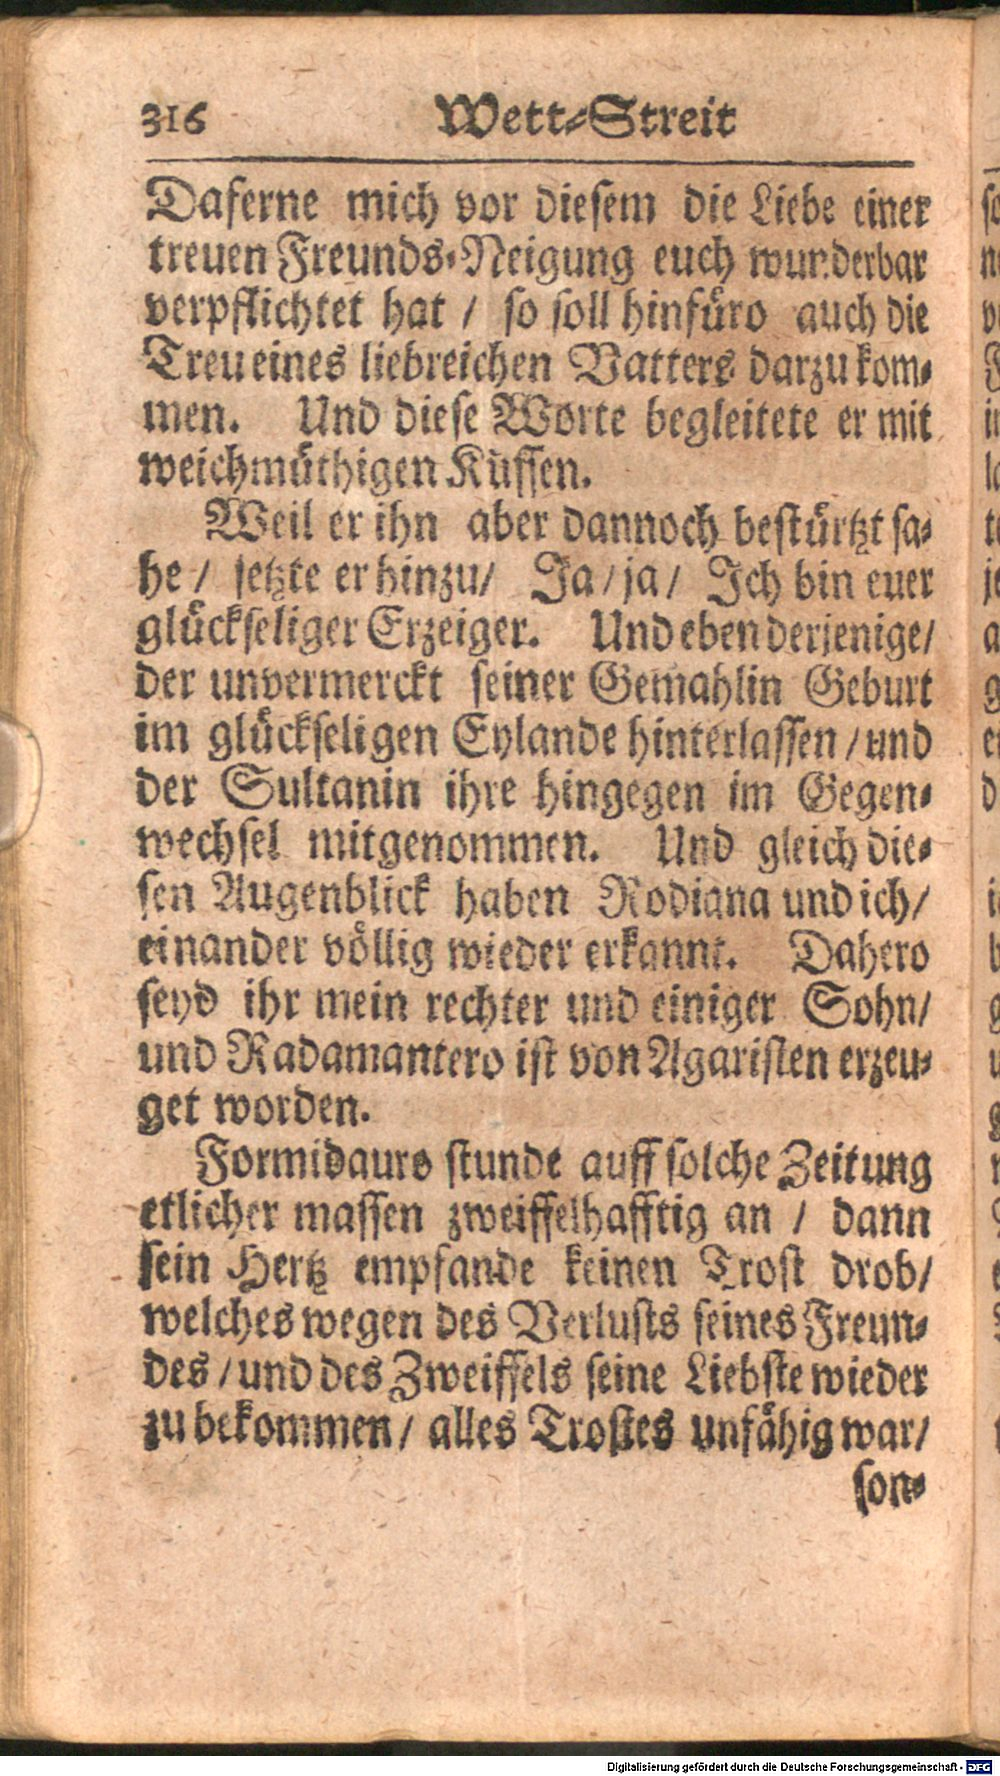 316 Wett-Streit
Daferne mich vor diesem die Liebe einer
treuen Freunds-Neigung euch wunderbar
verpflichtet hat / so soll hinfüro auch die
Treu eines liebreichen Vatters darzu kom-
men. Und diese Worte begleitete er mit
weichmüthigen Küssen.
Weil er ihn aber dannoch bestürtzt sa-
he / setzte er hinzu / Ja / ja / Ich bin euer
glückseliger Erzeiger. Und eben derjenige /
der unvermerckt seiner Gemahlin Geburt
im glückseligen Eylande hinterlassen / und
der Sultanin ihre hingegen im Gegen-
wechsel mitgenommen. Und gleich die-
sen Augenblick haben Rodiana und ich /
einander völlig wieder erkannt. Dahero
seyd ihr mein rechter und einiger Sohn /
und Radamantero ist von Agaristen erzeu-
get worden.
Formidauro stunde auff solche Zeitung
etlicher massen zweiffelhafftig an / dann
sein Hertz empfande keinen Trost drob /
welches wegen des Verlusts seines Freun-
des / und des Zweiffels seine Liebste wieder
zu bekommen / alles Trostes unfähig war /
son-
Digitalisierung gefördert durch die Deutsche Forschungsgemeinschaft - DFG